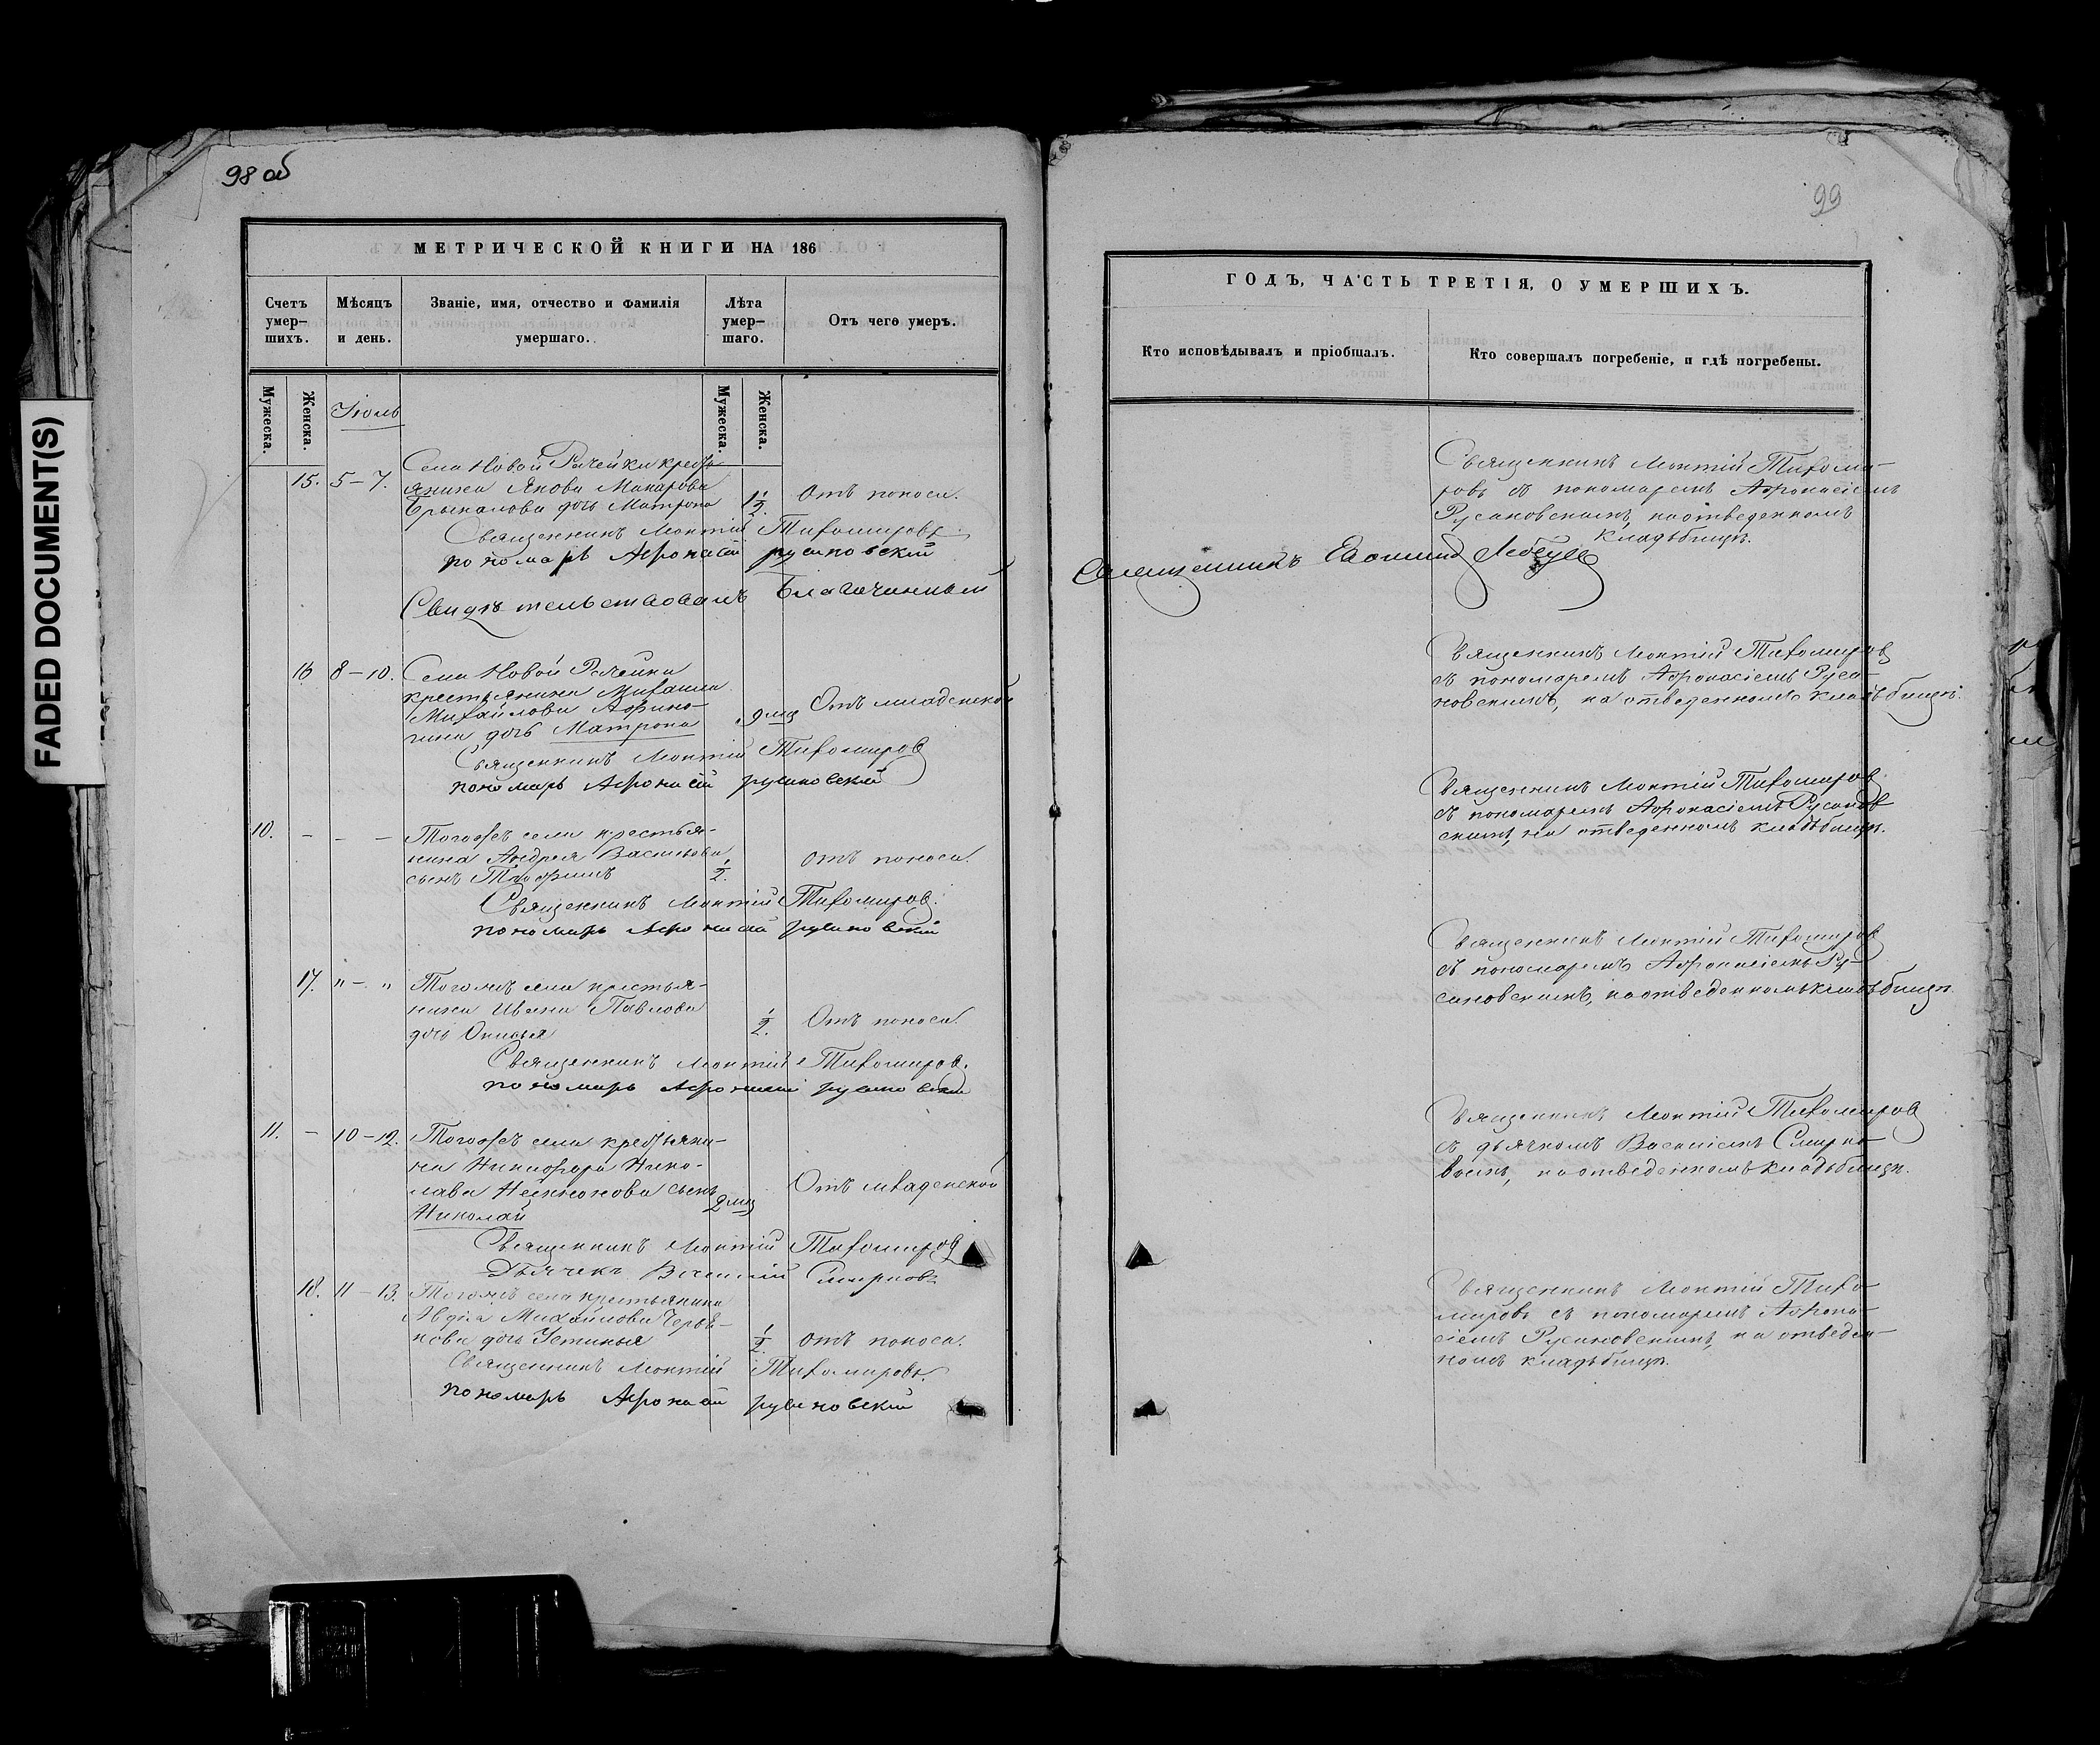 FADED DOCUMENT(S)
98 об
МЕТРИЧЕСКОЙ КНИГИ НА 186
Счетъ умер-шихъ.
Мѣсяцъ и день.
Званіе, имя, отчество и фамилія умершаго.
Лѣта умер-шаго.
Отъ чего умеръ.
Мужеска.
Женска.
Мужеска.
Женска.
Іюль
Села Новой Рачейки кресть-
15. 5 – 7. янина Якова Макарова
дочь Матрона 1½. Отъ поноса.
Священникъ Леонтій Тихомировъ.
пономарь Афонасій Русановскій
Свидѣтельствовалъ Благочинный
16 8 – 10. Села Новой Рачейки
крестьянина Михаила
Михайлова Афино-
гина дочь Матрона 9 мц Отъ младенской
Священникъ Леонтій Тихомировъ
пономарь Афонасій Русановскій
10. – – – Тогожъ села крестья-
нина Андрея Васильева
сынъ Трофимъ ½. отъ поноса.
Священникъ Леонтій Тихомировъ.
пономарь Афонасій Русановскій
17. " – " Тогожъ села крестья-
нина Ивана Павлова
дочь Анисья ½. Отъ поноса.
Священникъ Леонтій Тихомировъ.
пономарь Афонасій Русановскій
11. – 10 – 12. Тогожъ села крестьяни-
на Никифора Нико-
лаева сынъ
Николай 2 мц Отъ младенской
Священникъ Леонтій Тихомировъ
Дьячекъ Василій Смирновъ
18. 11 – 13. Тогожъ села крестьянина
Михайлова
дочь Устинья ½ отъ поноса.
Священникъ Леонтій Тихомировъ.
пономарь Афонасій Русановскій
99
ГОДЪ, ЧАСТЬ ТРЕТІЯ, О УМЕРШИХЪ.
Кто исповѣдывалъ и пріобщалъ.
Кто совершалъ погребеніе, и гдѣ погребены.
Священникъ Леонтій Тихоми-
ровъ съ пономаремъ Афонасіемъ
Русановскимъ, на отведенномъ
кладьбищѣ.
Священникъ
Священникъ Леонтій Тихомировъ
съ пономаремъ Афонасіемъ Руса-
новскимъ, на отведенномъ кладьбищѣ.
Священникъ Леонтій Тихомировъ
съ пономаремъ Афонасіемъ Русанов
скимъ, на отведенномъ кладьбищѣ.
Священникъ Леонтій Тихомировъ
съ пономаремъ Афонасіемъ Ру-
сановскимъ, на отведенномъ кладьбищѣ.
Священникъ Леонтій Тихомировъ
съ дьячкомъ Василіемъ Смирно-
вымъ, на отведенномъ кладьбищѣ.
Священникъ Леонтій Тихо-
мировъ съ пономаремъ Афона-
сіемъ Русановскимъ, на отведен-
номъ кладьбищѣ.